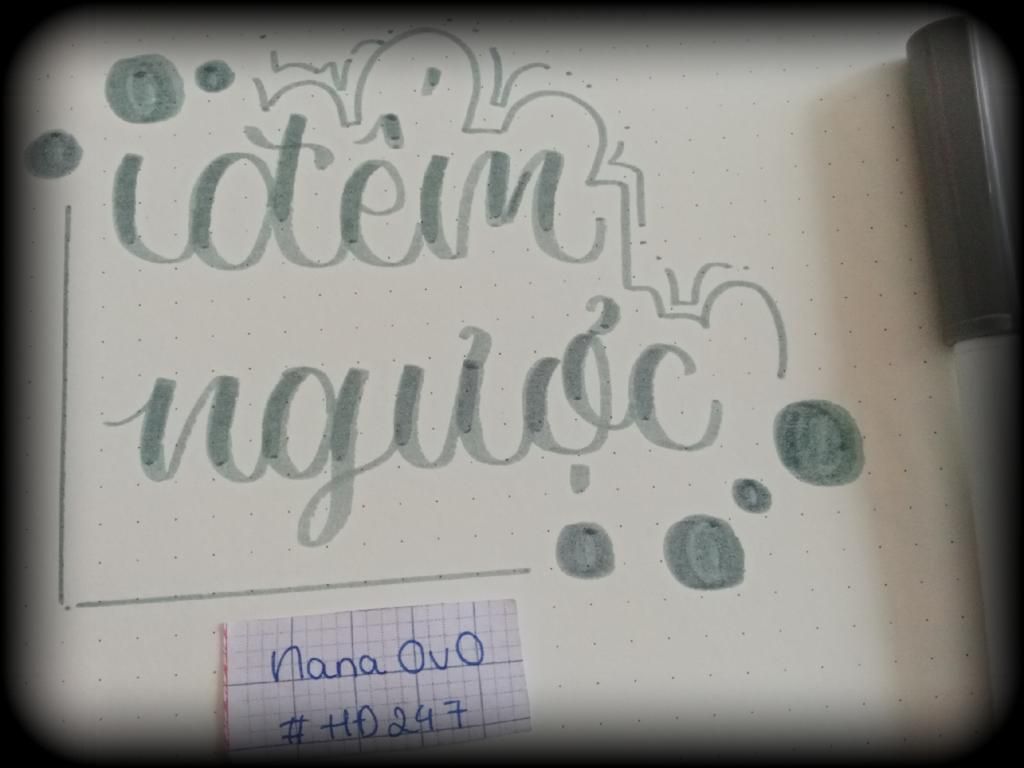 đếm
ngược
Nana OvO
#HĐ247